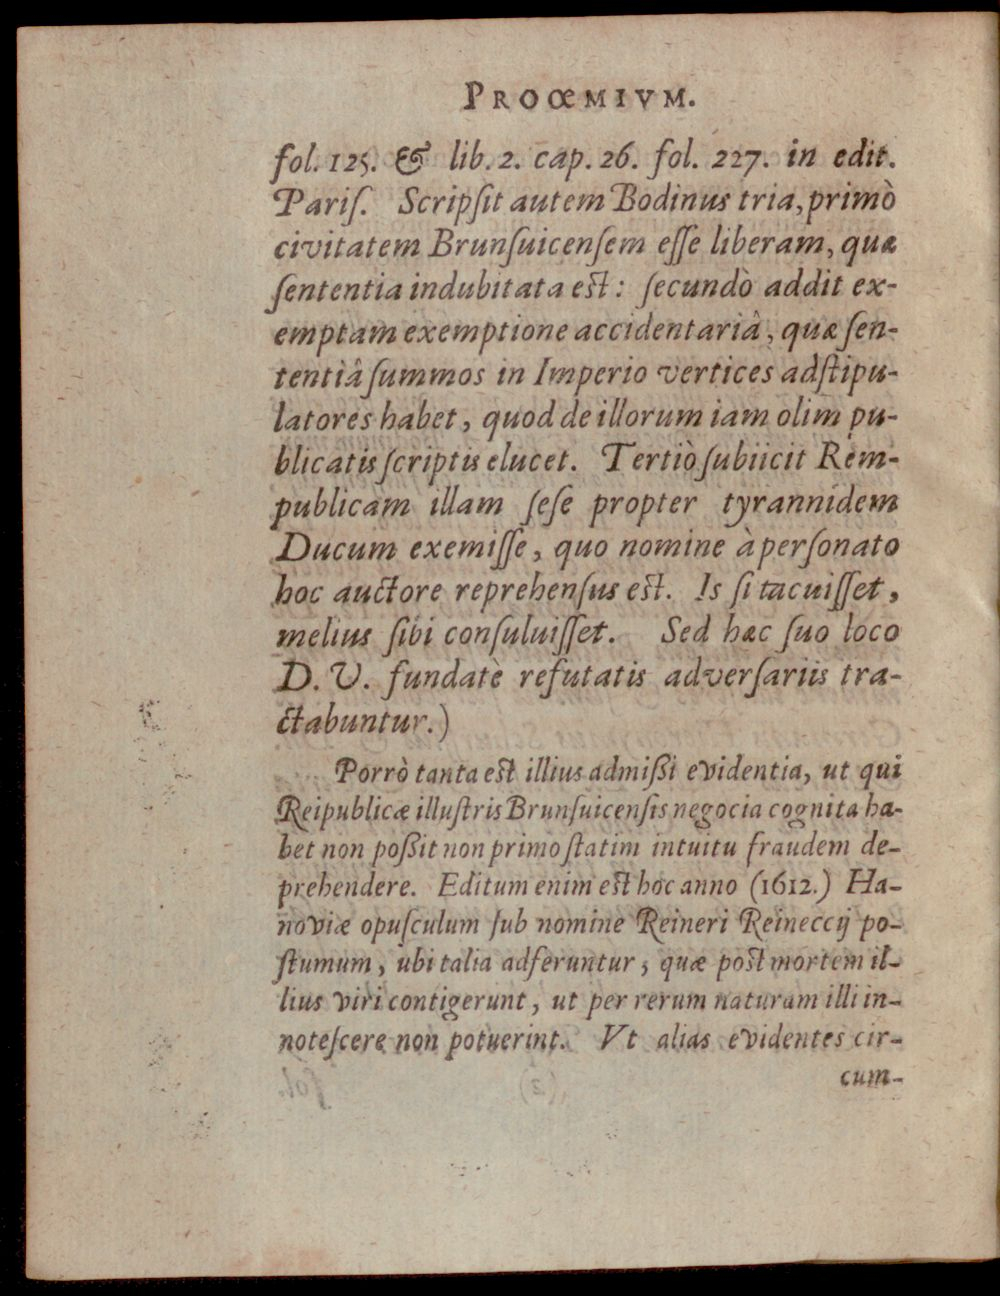 PROŒMIVM.
fol. 125. & lib. 2. cap. 26. fol. 227. in edit.
Pariſ. Scripſit autem Bodinus tria, primò
civitatem Brunſuicenſem eſſe liberam, quæ
ſententia indubitata eſt: ſecundò addit ex-
emptam exemptione accidentariâ, quæ ſen-
tentiâ ſummos in Imperio vertices adſtipu-
latores habet, quod de illorum iam olim pu-
blicatis ſcriptis elucet. Tertiò ſubiicit Rem-
publicam illam ſeſe propter tyrannidem
Ducum exemiſſe, quo nomine à perſonato
hoc auctore reprehenſus eſt. Is ſi tacuiſſet,
melius ſibi conſuluiſſet. Sed hæc ſuo loco
D. V. fundatè refutatis adverſariis tra-
ctabuntur.)
Porrò tanta eſt illius admißi evidentia, ut qui
Reipublicæ illuſtris Brunſuicenſis negocia cognita ha-
bet non poßit non primo ſtatim intuitu fraudem de-
prehendere. Editum enim eſt hoc anno (1612.) Ha-
noviæ opuſculum ſub nomine Reineri Reineccij po-
ſtumum, ubi talia adferuntur, quæ poſt mortem il-
lius viri contigerunt, ut per rerum naturam illi in-
noteſcere non potuerint. Vt alias evidentes cir-
cum-